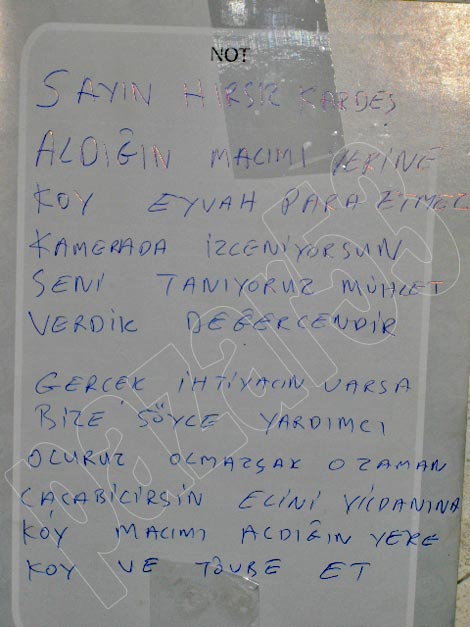 NOT
SAYIN HIRSIZ KARDEŞ
ALDIĞIN MALIMI YERİNE
KOY EYVAH PARA ETMEZ
KAMERADA İZLENİYORSUN
SENİ TANIYORUZ MÜHLET
VERDİK DEĞERLENDİR
GERÇEK İHTİYACIN VARSA
BİZE SÖYLE YARDIMCI
OLURUZ OLMAZSAK O ZAMAN
ÇALABİLİRSİN ELİNİ VİCDANINA
KOY MALIMI ALDIĞIN YERE
KOY VE TÖVBE ET
pazar53